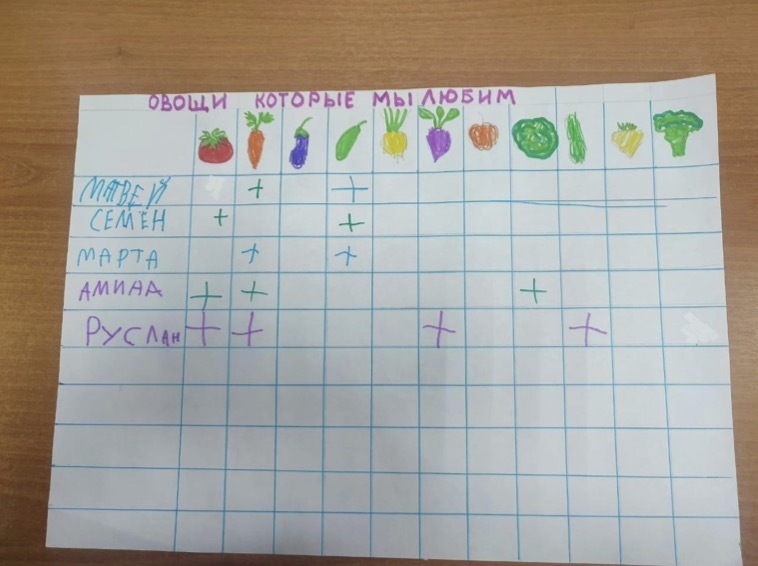 ОВОЩИ КОТОРЫЕ МЫ ЛЮБИМ
МАТВЕЙ + +
СЕМЕН + +
МАРТА + +
АМИНА + + +
РУСЛАН + + + +